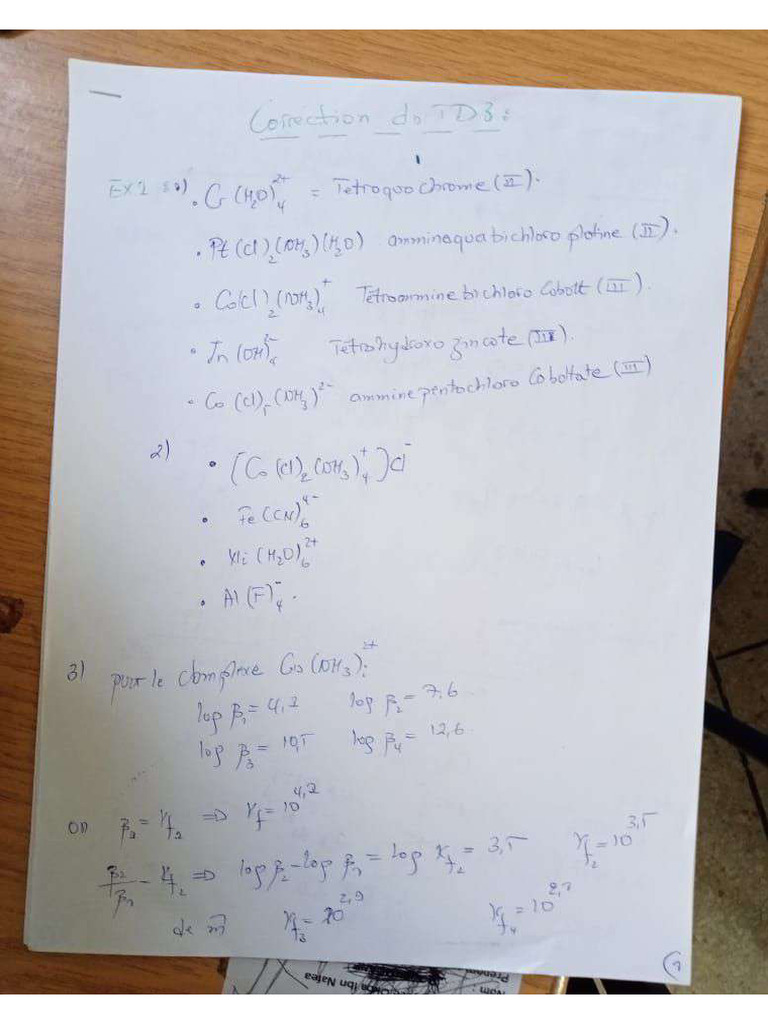 Correction du TD3:
EX1 1)
• Cr(H₂O)₄²⁺ = Tetraquo chrome (II).
• Pt(Cl)₂(NH₃)(H₂O) ammin aqua bichloro platine (II).
• Co(Cl)₂(NH₃)₄⁺ Tetroammine bichloro Cobalt (III).
• Zn(OH)₄²⁻ Tetrahydroxo zincate (II).
• Co(Cl)₅(NH₃)²⁻ ammine pentachloro Cobaltate (III)
2)
• [Co(Cl)₂(NH₃)₄⁺]Cl⁻
• Fe(CN)₆⁴⁻
• Ni(H₂O)₆²⁺
• Al(F)₄⁻.
3) pour le complexe Cu(NH₃)ᵢ²⁺
log β₁ = 4,2 log β₂ = 7,6
log β₃ = 10,5 log β₄ = 12,6
on β₁ = Kf₁ ⇒ Kf = 10^4,2
β₂/β₁ = Kf₂ ⇒ log β₂ - log β₁ = log Kf₂ = 3,5 Kf₂ = 10^3,5
de m̄ Kf₃ = 10^2,9 Kf₄ = 10^2,1
1
Nom :
Ibn Nafea
Prenom